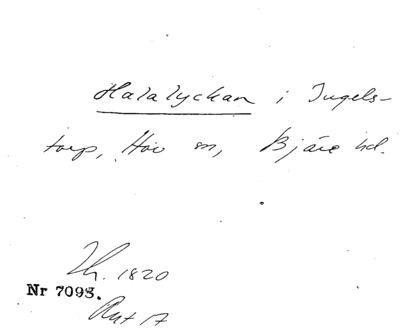 Halalyckan i Ingels-
torp, Hov sn, Bjäre hd.
Th. 1820
Nr 7098.
Ant 17